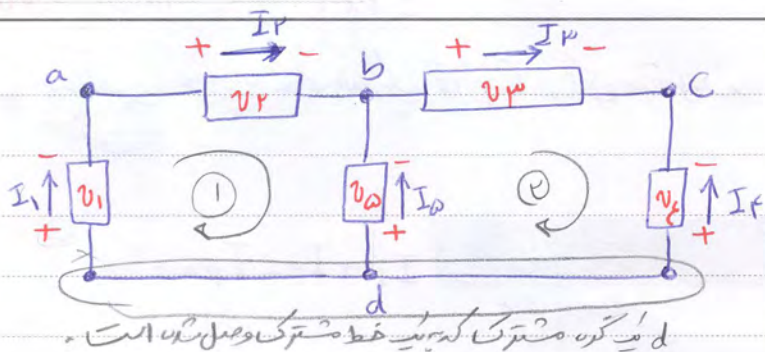 + I۲ -
+ I۳ -
a
v۲
b
v۳
c
I۱
-
v۱
+
۱
-
v۵
+
I۵
۲
-
v۴
+
I۴
d
d یک گره مشترک که به یک خط مشترک وصل شده است.